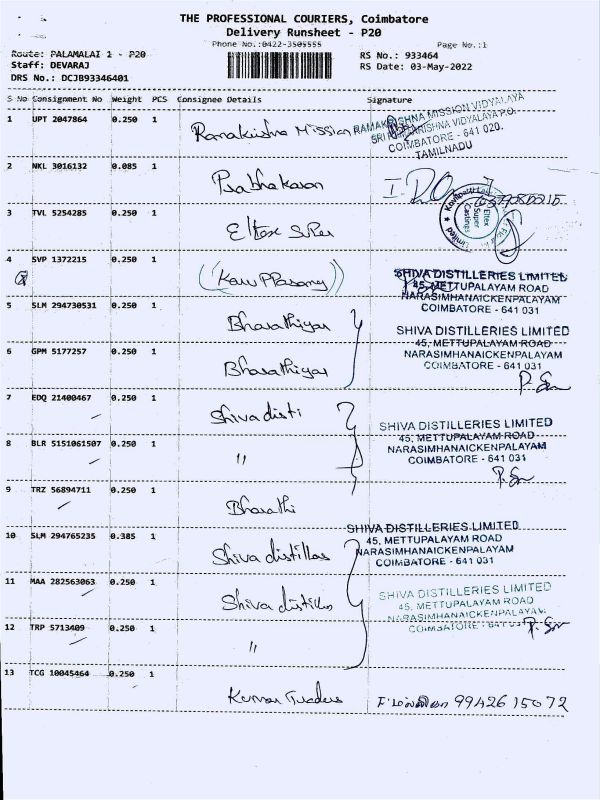 THE PROFESSIONAL COURIERS, Coimbatore
Delivery Runsheet - P20
Phone No.:0422-3505555
Page No.:1
Route: PALAMALAI 1 - P20
RS No.: 933464
Staff: DEVARAJ
RS Date: 03-May-2022
DRS No.: DCJB93346401
S No Consignment No Weight PCS Consignee Details Signature
1 UPT 2047864 0.250 1 Ramakrishna Mission
RAMAKRISHNA MISSION VIDYALAYA
SRI RAMAKRISHNA VIDYALAYA P.O.
COIMBATORE - 641 020.
TAMILNADU
2 NKL 3016132 0.085 1 Prabhakaran
3 TVL 5254285 0.250 1 Eltex Super
Eltex
Super
Castings
Limited
4 SVP 1372215 0.250 1
SHIVA DISTILLERIES LIMITED
45, METTUPALAYAM ROAD
NARASIMHANAICKENPALAYAM
COIMBATORE - 641 031
5 SLM 294730531 0.250 1 Bharathiyar
SHIVA DISTILLERIES LIMITED
45, METTUPALAYAM ROAD
NARASIMHANAICKENPALAYAM
COIMBATORE - 641 031
6 GPM 5177257 0.250 1 Bharathiyar
7 EDQ 21400467 0.250 1 Shiva disti
SHIVA DISTILLERIES LIMITED
45, METTUPALAYAM ROAD
NARASIMHANAICKENPALAYAM
COIMBATORE - 641 031
8 BLR 5151061507 0.250 1 "
9 TRZ 56894711 0.250 1 Bharathi
10 SLM 294765235 0.385 1 Shiva distillas
SHIVA DISTILLERIES LIMITED
45, METTUPALAYAM ROAD
NARASIMHANAICKENPALAYAM
COIMBATORE - 641 031
11 MAA 282563063 0.250 1 Shiva distillas
SHIVA DISTILLERIES LIMITED
45, METTUPALAYAM ROAD
NARASIMHANAICKENPALAYAM
COIMBATORE - 641 031
12 TRP 5713409 0.250 1 "
13 TCG 10045464 0.250 1 Kumar Traders
99426 15072